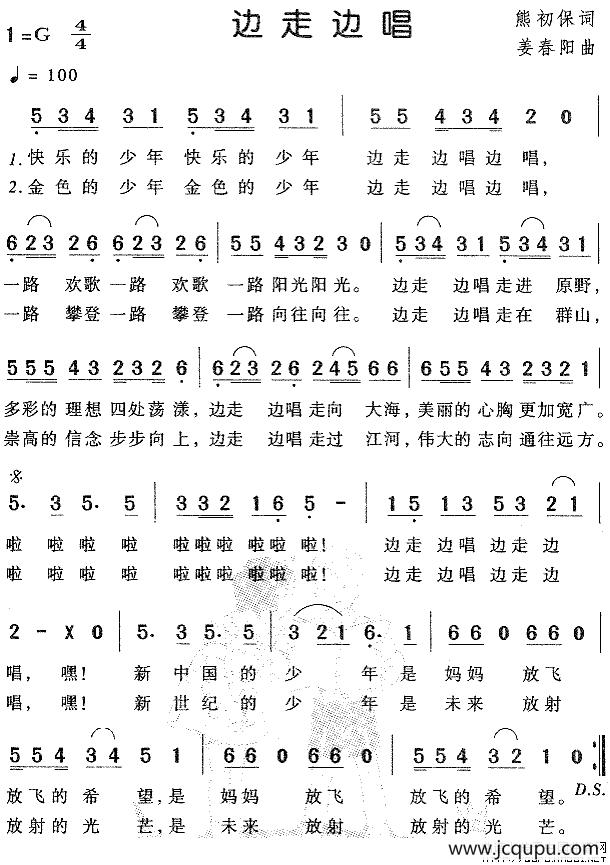 边走边唱
熊初保词
姜春阳曲
1=G 4/4
♩= 100
5 34 31 5 34 31 | 55 434 2 0
1.快乐的 少年 快乐的 少年 边走 边唱边 唱,
2.金色的 少年 金色的 少年 边走 边唱边 唱,
623 26 623 26 | 55 4323 30 | 534 31 534 31
一路 欢歌一路 欢歌 一路 阳光阳光。 边走 边唱走进 原野,
一路 攀登一路 攀登 一路 向往向往。 边走 边唱走在 群山,
555 43 232 6 | 623 26 245 66 | 655 43 2321
多彩的 理想 四处荡 漾,边走 边唱 走向 大海,美丽的 心胸 更加宽广。
崇高的 信念 步步向 上,边走 边唱 走过 江河,伟大的 志向 通往远方。
5. 3 5. 5 | 332 16 5 - | 15 13 53 21
啦 啦 啦 啦 啦啦啦 啦啦 啦! 边走 边唱 边走 边
啦 啦 啦 啦 啦啦啦 啦啦 啦! 边走 边唱 边走 边
2 - X 0 | 5. 35. 5 | 3 21 6. 1 | 660 660
唱, 嘿! 新 中国 的 少 年 是 妈妈 放飞
唱, 嘿! 新 世纪 的 少 年 是 未来 放射
554 34 5 1 | 660 660 | 554 32 1 0 :
放飞的 希 望,是 妈妈 放飞 放飞的 希 望。
D.S.
放射的 光 芒,是 未来 放射 放射的 光 芒。
www.jcqupu.com